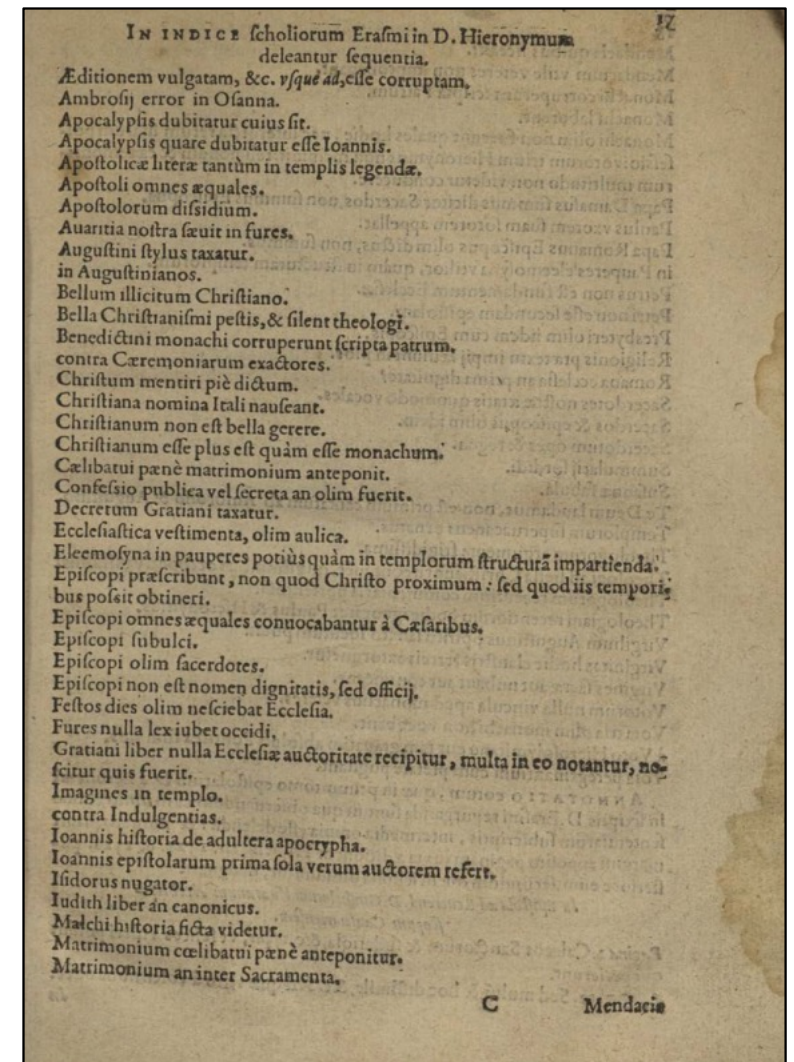 17
IN INDICE ſcholiorum Eraſmi in D. Hieronymum
deleantur ſequentia.
Æditionem vulgatam, &c. vſque ad, eſſe corruptam.
Ambroſij error in Oſanna.
Apocalypſis dubitatur cuius ſit.
Apocalypſis quare dubitatur eſſe Ioannis.
Apoſtolicæ literæ tantùm in templis legendæ.
Apoſtoli omnes æquales.
Apoſtolorum diſsidium.
Auaritia noſtra ſæuit in fures.
Auguſtini ſtylus taxatur.
in Auguſtinianos.
Bellum illicitum Chriſtiano.
Bella Chriſtianiſmi peſtis, & ſilent theologi.
Benedictini monachi corruperunt ſcripta patrum.
contra Cæremoniarum exactores.
Chriſtum mentiri piè dictum.
Chriſtiana nomina Itali nauſeant.
Chriſtianum non eſt bella gerere.
Chriſtianum eſſe plus eſt quàm eſſe monachum.
Cælibatui pænè matrimonium anteponit.
Confeſsio publica vel ſecreta an olim fuerit.
Decretum Gratiani taxatur.
Eccleſiaſtica veſtimenta, olim aulica.
Eleemoſyna in pauperes potiùs quàm in templorum ſtructurã impartienda.
Epiſcopi præſcribunt, non quod Chriſto proximum: ſed quod iis tempori-
bus poſsit obtineri.
Epiſcopi omnes æquales conuocabantur à Cæſaribus.
Epiſcopi ſubulci.
Epiſcopi olim ſacerdotes.
Epiſcopi non eſt nomen dignitatis, ſed officij.
Feſtos dies olim neſciebat Eccleſia.
Fures nulla lex iubet occidi.
Gratiani liber nulla Eccleſiæ auctoritate recipitur, multa in eo notantur, ne-
ſcitur quis fuerit.
Imagines in templo.
contra Indulgentias.
Ioannis hiſtoria de adultera apocrypha.
Ioannis epiſtolarum prima ſola verum auctorem refert.
Iſidorus nugator.
Iudith liber an canonicus.
Malchi hiſtoria ficta videtur.
Matrimonium cœlibatui pænè anteponitur.
Matrimonium an inter Sacramenta.
C Mendacia